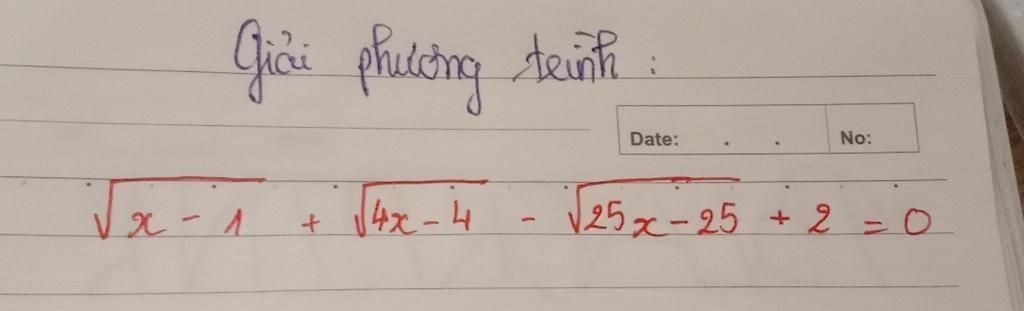 Giải phương trình :
Date: . . No:
√x - 1 + √4x - 4 - √25x - 25 + 2 = 0